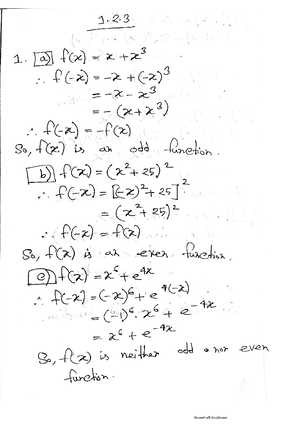 1.2.3
1. a) f(x) = x + x³
∴ f(-x) = -x + (-x)³
= -x - x³
= - (x + x³)
∴ f(-x) = -f(x)
So, f(x) is an odd function.
b) f(x) = (x² + 25)²
∴ f(-x) = [(-x)² + 25]²
= (x² + 25)²
∴ f(-x) = f(x)
So, f(x) is an even function.
c) f(x) = x⁶ + e⁴ˣ
∴ f(-x) = (-x)⁶ + e⁴⁽⁻ˣ⁾
= (-1)⁶ . x⁶ + e⁻⁴ˣ
= x⁶ + e⁻⁴ˣ
So, f(x) is neither odd nor even
function.
Scanned with CamScanner